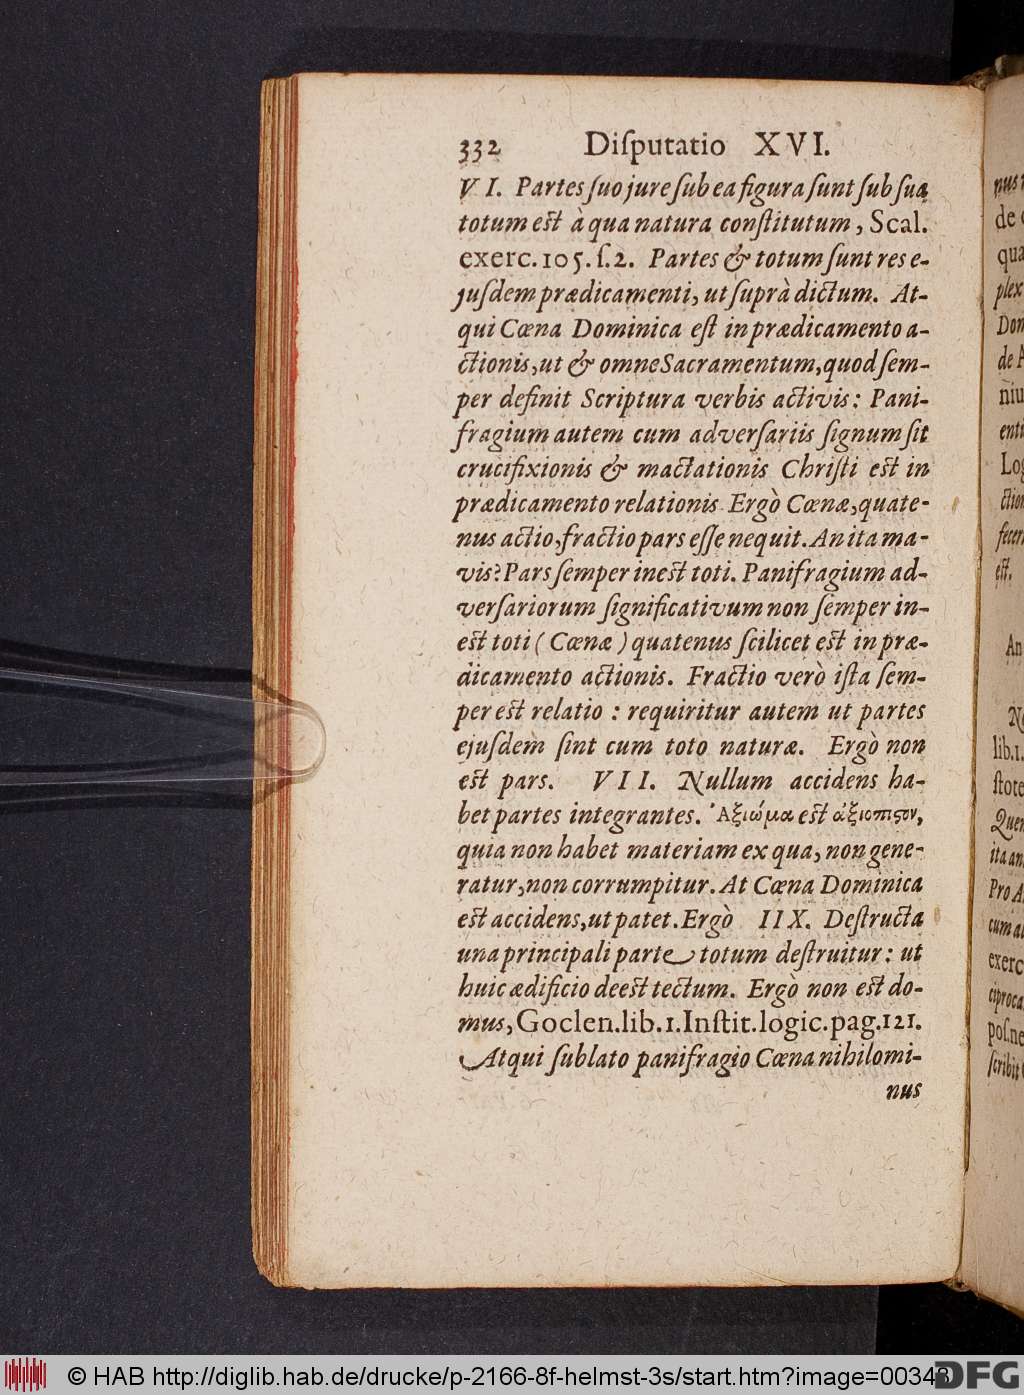 332 Diſputatio XVI.
VI. Partes ſuo jure ſub ea figura ſunt ſub ſua
totum est à qua natura conſtitutum, Scal.
exerc. 105. ſ. 2. Partes & totum ſunt res e-
juſdem prædicamenti, ut ſuprà dictum. At-
qui Cœna Dominica eſt in prædicamento a-
ctionis, ut & omne Sacramentum, quod ſem-
per definit Scriptura verbis activis: Pani-
fragium autem cum adverſariis ſignum ſit
crucifixionis & mactationis Chriſti est in
prædicamento relationis. Ergò Cœnæ, quate-
nus actio, fractio pars eſſe nequit. An ita ma-
vis? Pars ſemper inest toti. Panifragium ad-
verſariorum ſignificativum non ſemper in-
est toti (Cœnæ) quatenus ſcilicet est in præ-
dicamento actionis. Fractio verò iſta ſem-
per est relatio: requiritur autem ut partes
ejuſdem ſint cum toto naturæ. Ergò non
est pars. VII. Nullum accidens ha-
bet partes integrantes. Ἀξιώμα est ἀξιοπιϛον,
quia non habet materiam ex qua, non gene-
ratur, non corrumpitur. At Cœna Dominica
est accidens, ut patet. Ergò IIX. Deſtructa
una principali parte totum deſtruitur: ut
huic ædificio deest tectum. Ergò non est do-
mus, Goclen. lib. 1. Inſtit. logic. pag. 121.
Atqui ſublato panifragio Cœna nihilomi-
nus
de
qua
plex
Dom
de A
niu
enti
Log
ction
fecer
est.
An
lib. 1.
ſtote
Quer
ita an
Pro A
cum al
exerc
ciproca
poſ. ne
ſcribit
© HAB http://diglib.hab.de/drucke/p-2166-8f-helmst-3s/start.htm?image=00348
DFG